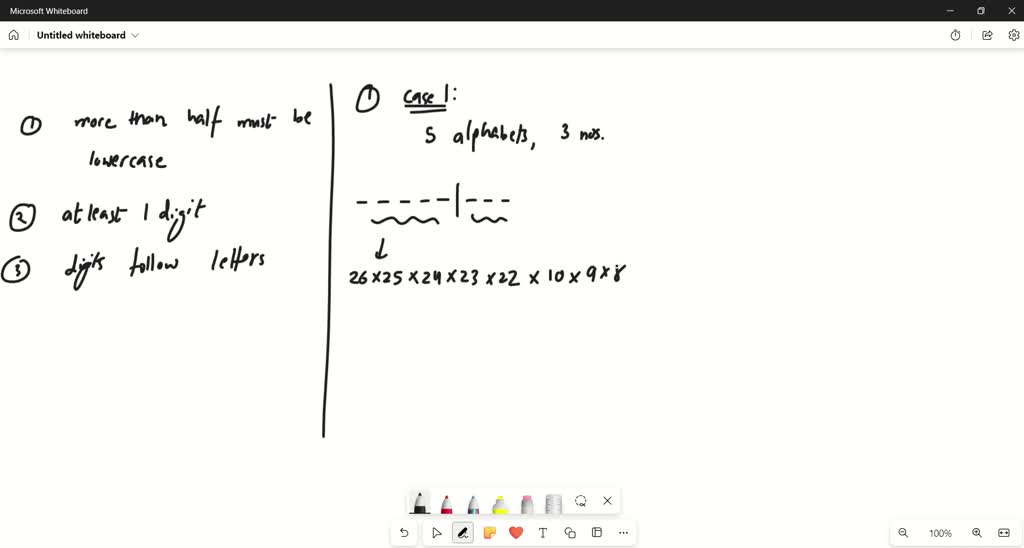 Microsoft Whiteboard
Untitled whiteboard
① more than half must be
lowercase
② atleast 1 digit
③ digits follow letters
① case 1:
5 alphabets, 3 nos.
26 × 25 × 24 × 23 × 22 × 10 × 9 × 8
100%